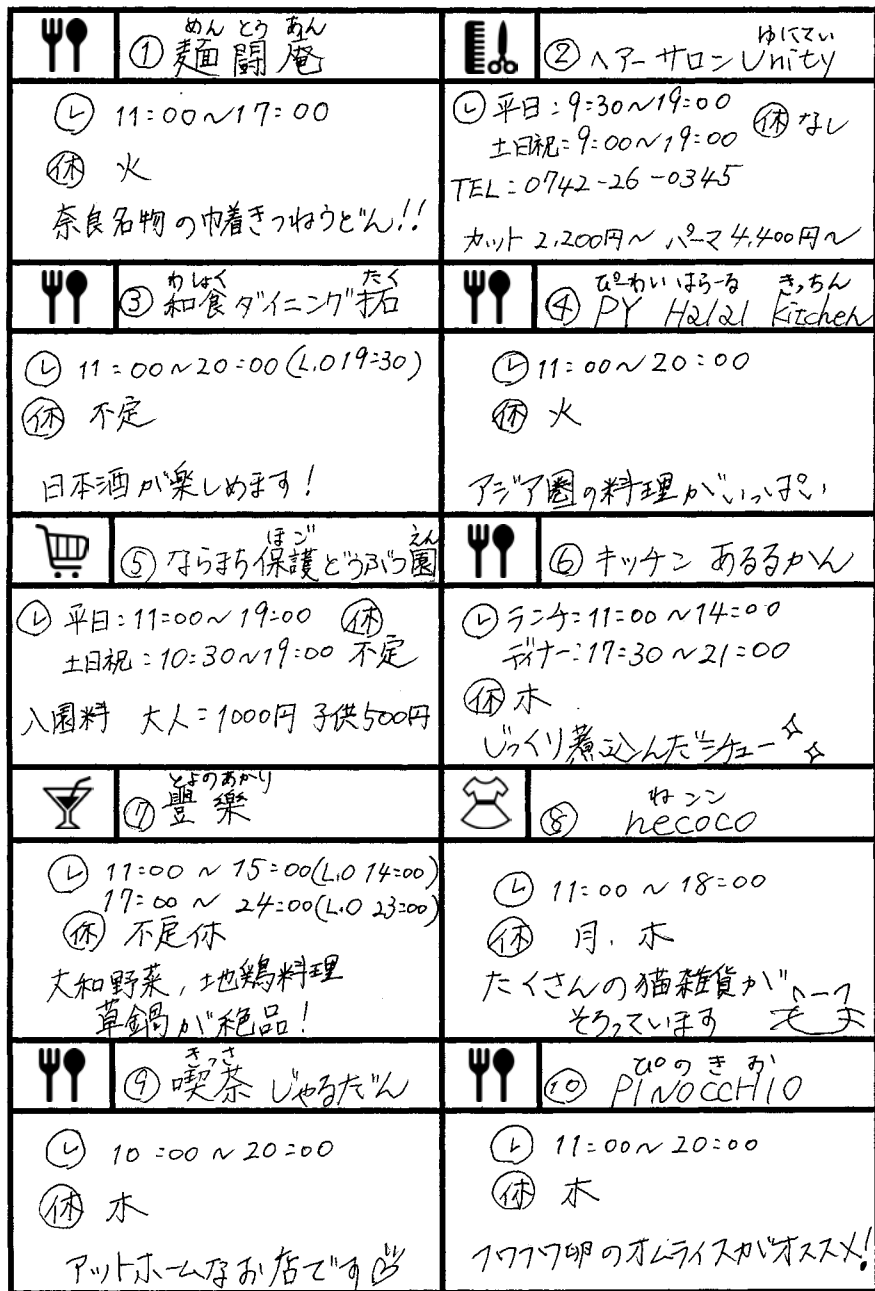 めん とう あん
① 麺闘庵
11:00～17:00
休 火
奈良名物の巾着きつねうどん!!
ゆにてぃ
② ヘアーサロンUnity
平日:9:30～19:00
土日祝:9:00～19:00 休 なし
TEL:0742-26-0345
カット 2,200円～ パーマ 4,400円～
わしょく たく
③ 和食ダイニング拓
11:00～20:00(L.O 19:30)
休 不定
日本酒が楽しめます!
ぴーわい はらーる きっちん
④ PY Halal Kitchen
11:00～20:00
休 火
アジア圏の料理がいっぱい
ほご えん
⑤ ならまち保護どうぶつ園
平日:11:00～19:00 休
土日祝:10:30～19:00 不定
入園料 大人:1000円 子供500円
⑥ キッチン あるるかん
ランチ:11:00～14:00
ディナー:17:30～21:00
休 木
じっくり煮込んだシチュー
とよのあかり
⑦ 豐樂
11:00～15:00(L.O 14:00)
17:00～24:00(L.O 23:00)
休 不定休
大和野菜,地鶏料理
草鍋が絶品!
ねココ
⑧ necoco
11:00～18:00
休 月.木
たくさんの猫雑貨が
そろっています
きっさ
⑨ 喫茶 じゃるだん
10:00～20:00
休 木
アットホームなお店です
ぴのきお
⑩ PINOCCHIO
11:00～20:00
休 木
フワフワ卵のオムライスがオススメ!